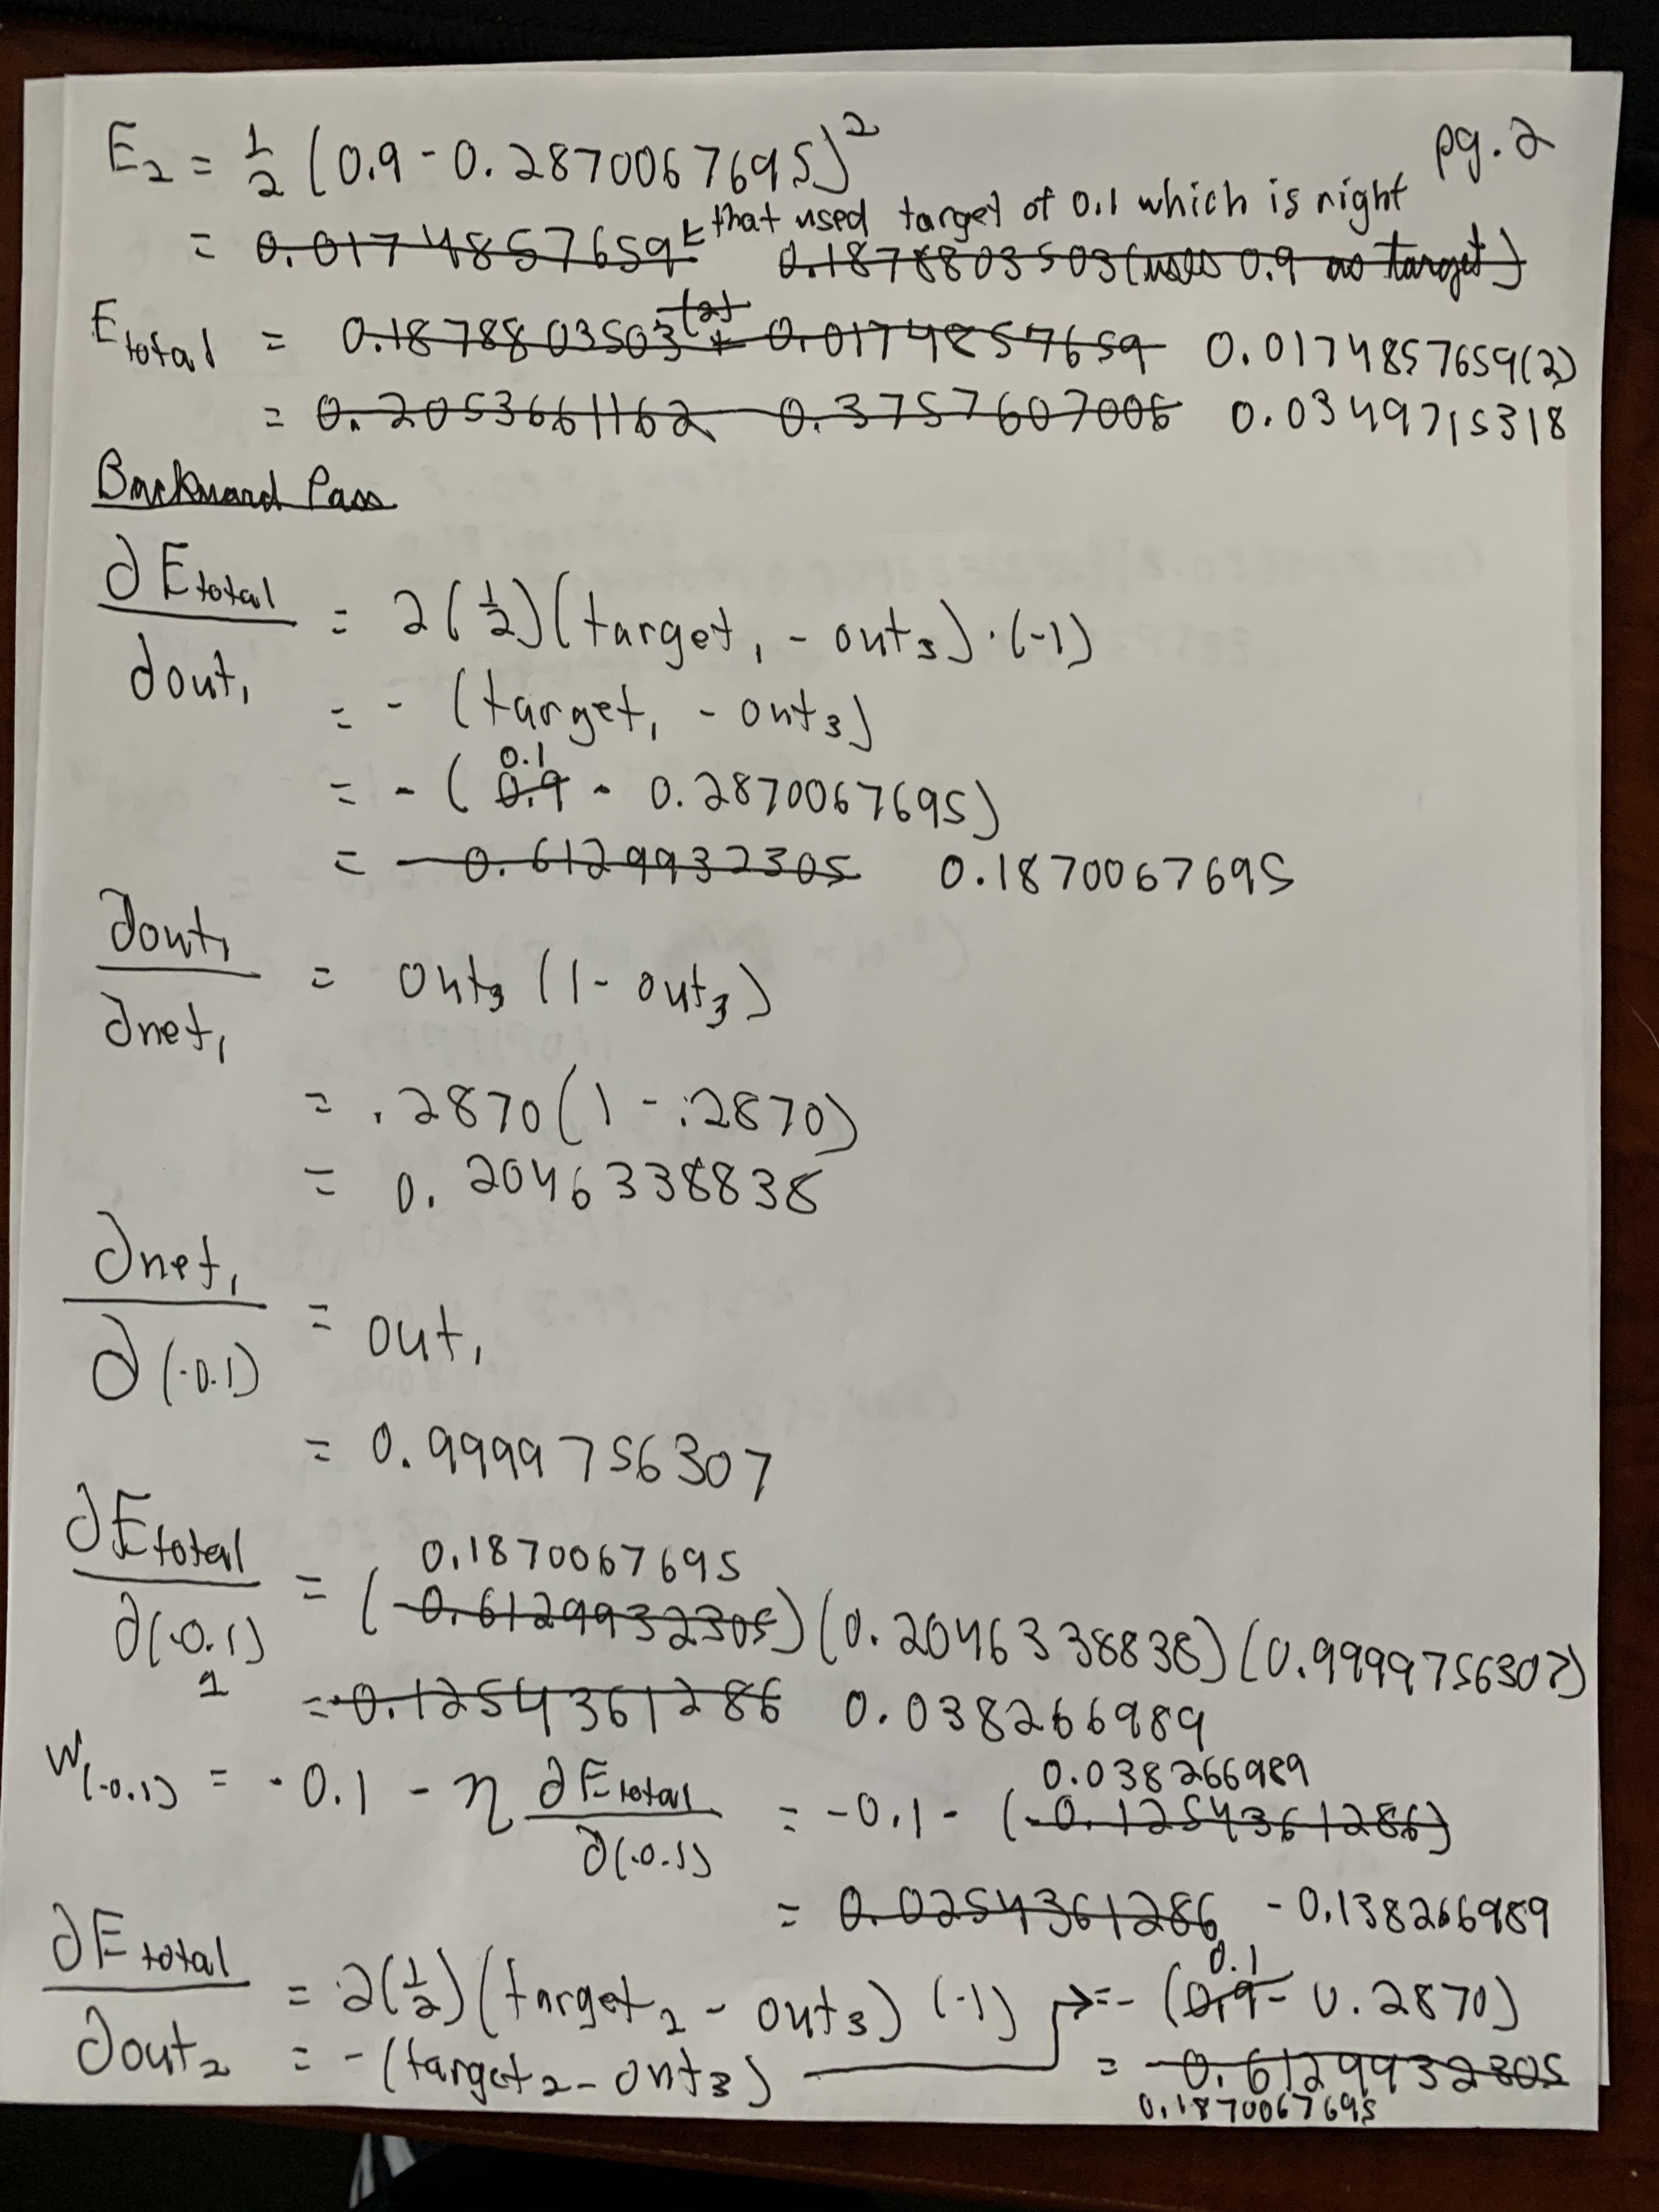 pg. 2
E₂ = 1/2 (0.9 - 0.2870067695)²
= ~~0.0174857659~~ ← that used target of 0.1 which is right ~~0.1878803503 (uses 0.9 as target)~~
E_total = ~~0.1878803503(2) + 0.0174857659~~ 0.0174857659(2)
= ~~0.2053661162~~ ~~0.3757607006~~ 0.0349715318
Backward Pass
∂E_total/∂out₁ = 2(1/2)(target₁ - out₃)·(-1)
= - (target₁ - out₃)
= - (~~0.9~~ 0.1 - 0.2870067695)
= ~~-0.6129932305~~ 0.1870067695
∂out₁/∂net₁ = out₃ (1 - out₃)
= .2870(1 - .2870)
= 0.2046338838
∂net₁/∂(-0.1) = out₁
= 0.9999756307
∂E_total/∂(-0.1)₁ = (~~-0.6129932305~~ 0.1870067695)(0.2046338838)(0.9999756307)
= ~~-0.1254361286~~ 0.038266989
W(-0.1) = -0.1 - η ∂E_total/∂(-0.1) = -0.1 - (~~-0.1254361286~~ 0.038266989)
= ~~0.0254361286~~ -0.138266989
∂E_total/∂out₂ = 2(1/2)(target₂ - out₃)(-1)
= -(target₂ - out₃) → = - (~~0.9~~ 0.1 - 0.2870)
= ~~-0.6129932305~~
0.1870067695